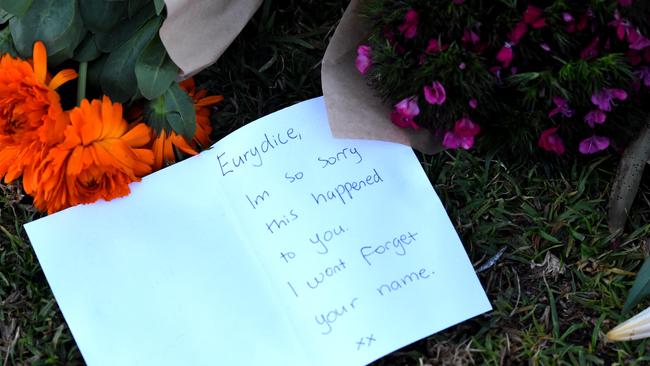 Eurydice,
Im so sorry
this happened
to you.
I wont forget
your name.
xx